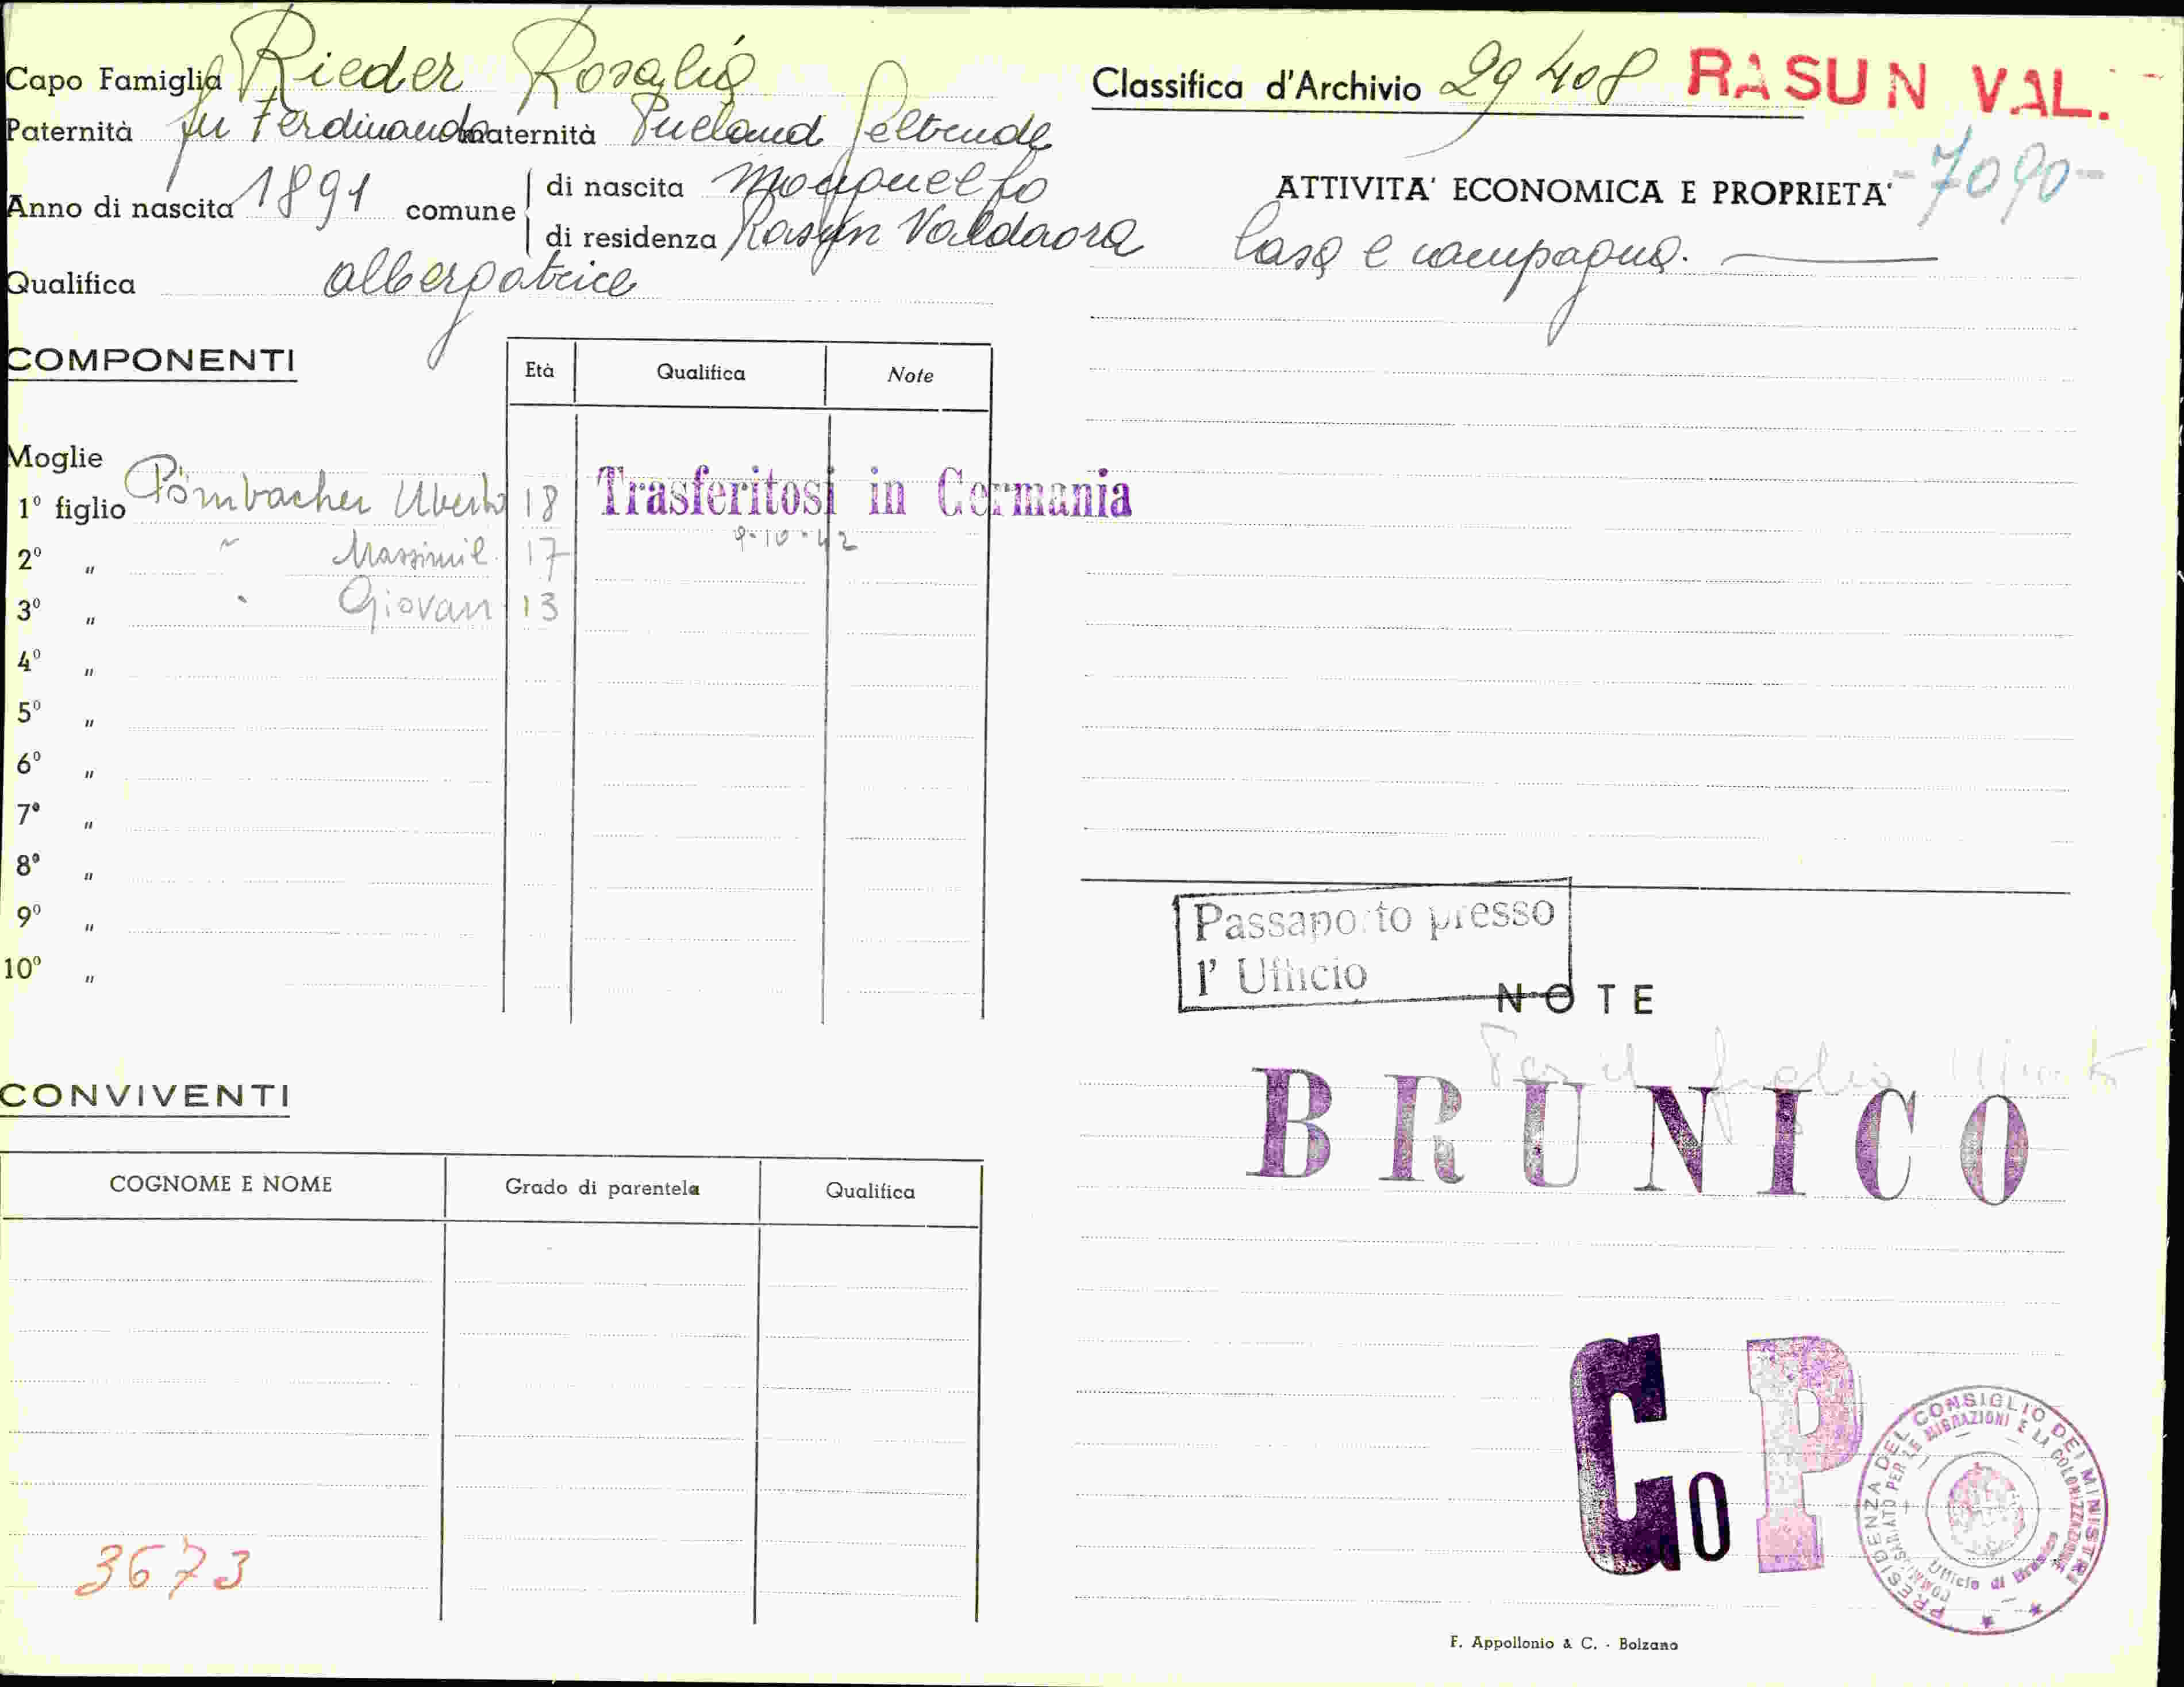 Capo Famiglia Rieder Rosalia
Paternità fu Ferdinando maternità Geltrude
Anno di nascita 1891 comune di nascita Monguelfo
di residenza Rasun Valdaora
Qualifica albergatrice
COMPONENTI
Età Qualifica Note
Moglie
1º figlio Pörnbacher Uberto 18 Trasferitosi in Germania
9-10-42
2º " " Massimil. 17
3º " " Giovan 13
4º "
5º "
6º "
7º "
8º "
9º "
10º "
CONVIVENTI
COGNOME E NOME Grado di parentela Qualifica
3673
Classifica d'Archivio 29408 RASUN VAL.
-7090-
ATTIVITA' ECONOMICA E PROPRIETA'
Casa e campagna.
Passaporto presso
l' Ufficio
NOTE
Per il figlio
BRUNICO
Co P
PRESIDENZA DEL CONSIGLIO DEI MINISTRI
COMMISSARIATO PER LE MIGRAZIONI E LA COLONIZZAZIONE
Ufficio di Brunico
F. Appollonio & C. - Bolzano